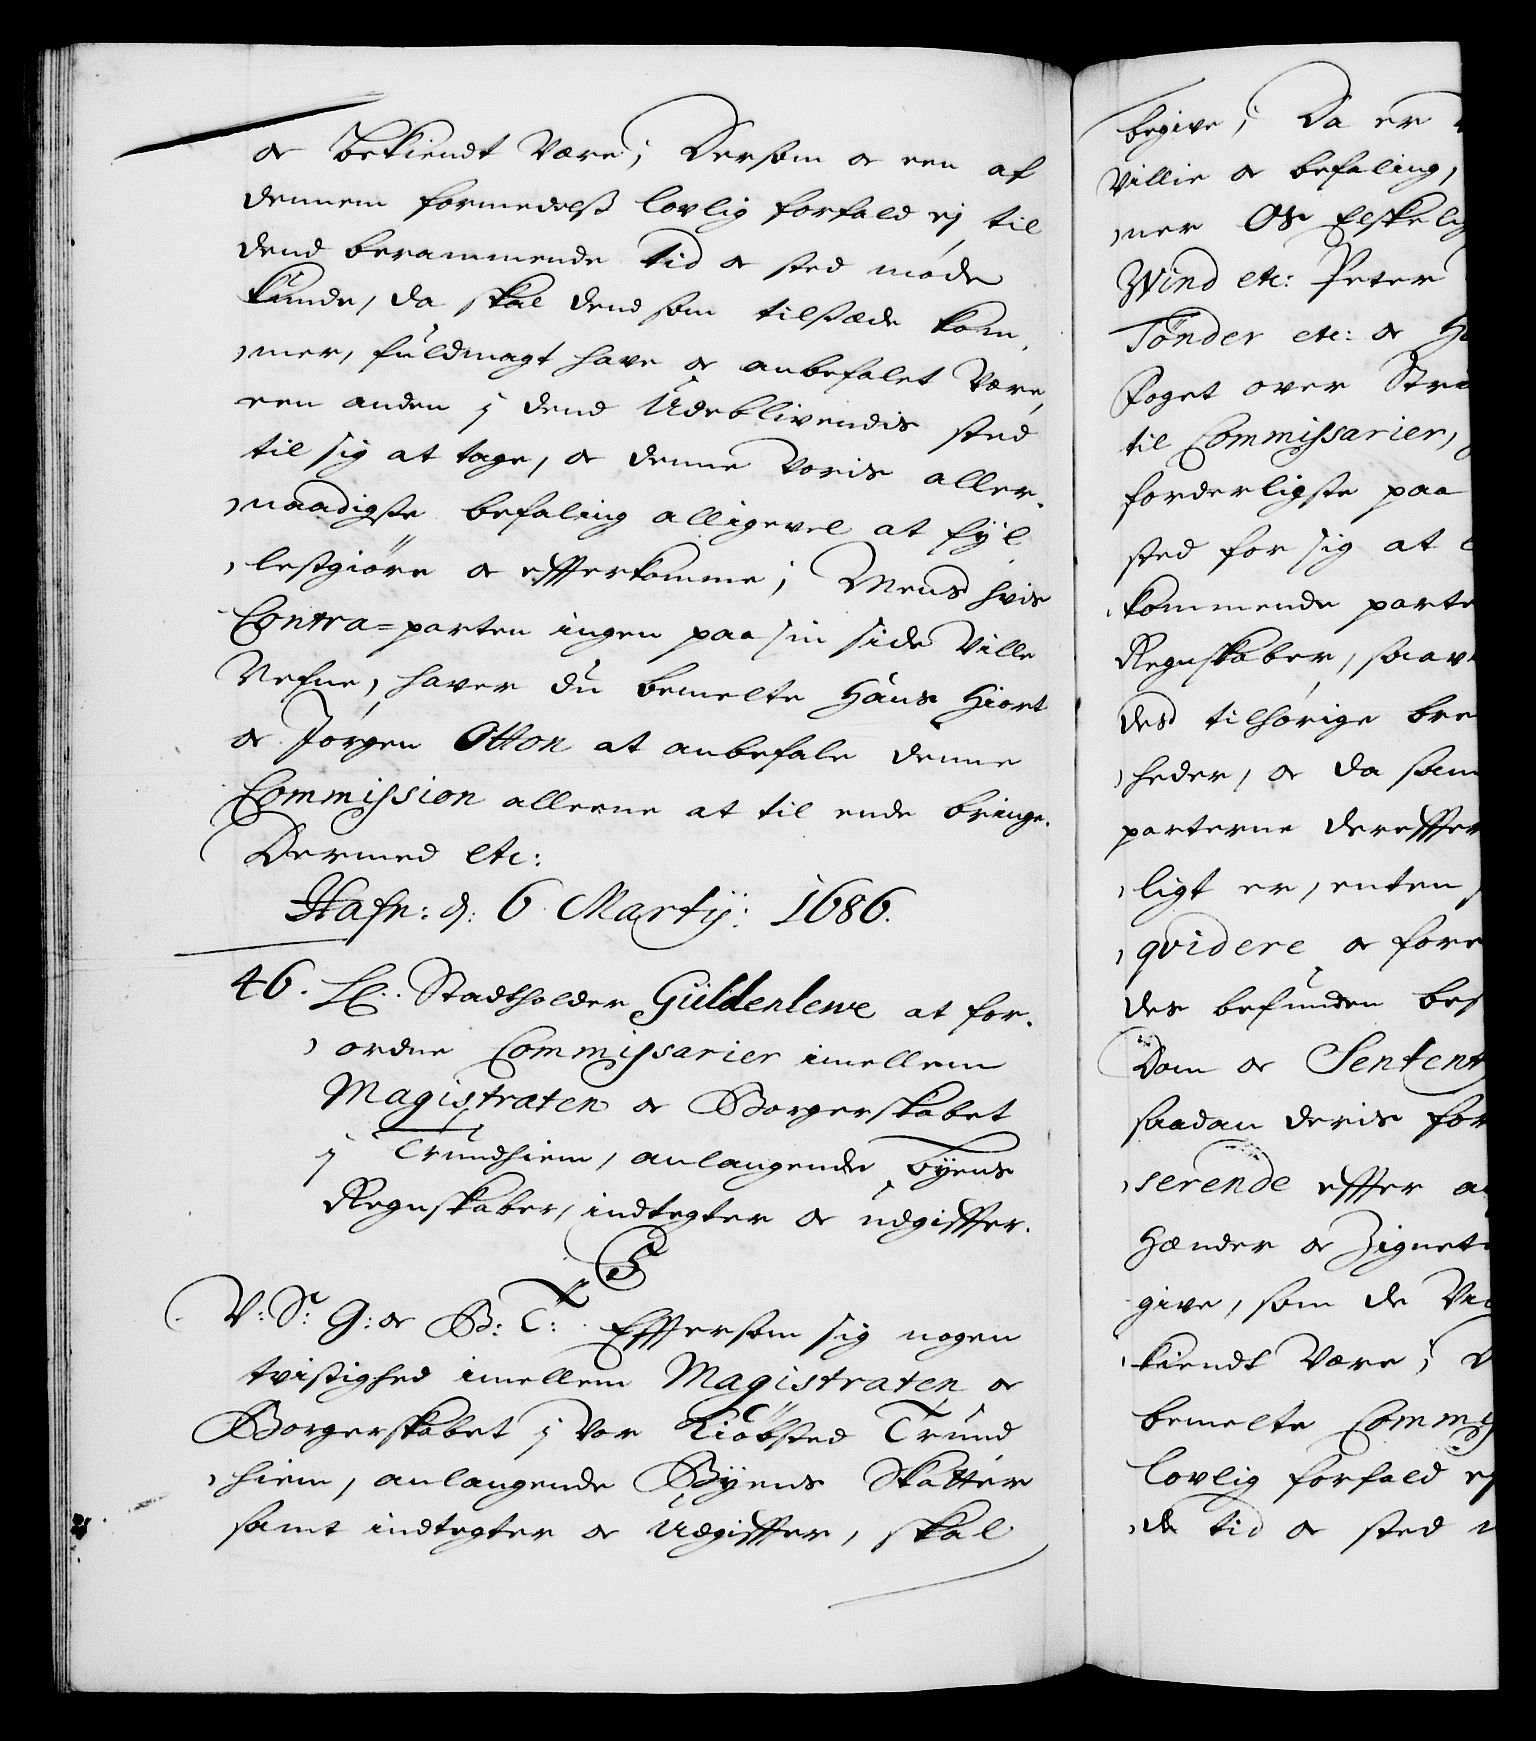 og bekiendt være; Dersom og een af
dennem formedelst lovlig forfald ej til
dend berammende tid og sted møde
kunde, da skal dend som tilstæde kom,
,mer, fuldmagt have og anbefalet være,
een anden j dend Udeblivendis sted
til sig at tage, og denne voris aller,
,naadigste befaling alligevel at fyl
,lestgiøre og effterkomme; Mens hvis
Contra=parten ingen paa sin side ville
Nefne, haver du bemelte Hans Hiort
og Jørgen Otton at anbefale denne
Commission alleene at til ende bringe.
Dermed etc:
Hafn: d: 6 Martij: 1686.
46. Stadtholder Güldenlewe at for,
,ordne Commissarier imellem
Magistraten og Borgerskabet
j Trundhiem, anlangende byens
Regnskaber, indtegter og udgiffter.
C5
V: S: G: og B: T: Efftersom sig nogen
tvistighed imellem Magistraten og
Borgerskabet j vor Kiøbsted Trund
,hiem, anlangende Byens Skatter
samt indtegter og Udgiffter, skal
begive; Da er
Villie og befaling,
,ner Os Elskelig
Wind etc: Peter
Tønder etc: og
Foget over Stri
til Commissarier,
forderligste paa
sted for sig at
,kommende parte
Regnskaber, saav
des tilhørige bre
,heder, og da sam
parterne dereffter
,ligt er, enten
,qvidere og fore
des befunden bes
Dom og Sentent
saadan deris for
,serende effter
Hænder og Zignet
give, som de
kiendt være;
bemelte Commis
lovlig forfald ej
,de tid og sted